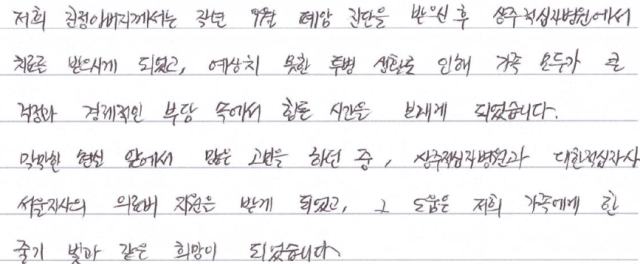 저희 친정아버지께서는 작년 9월 폐암 진단을 받으신 후 상주적십자병원에서
치료를 받으시게 되었고, 예상치 못한 투병 생활로 인해 가족 모두가 큰
걱정과 경제적인 부담 속에서 힘든 시간을 보내게 되었습니다.
막막한 현실 앞에서 많은 고민을 하던 중, 상주적십자병원과 대한적십자사
서울지사의 의료비 지원을 받게 되었고, 그 도움은 저희 가족에게 한
줄기 빛과 같은 희망이 되었습니다